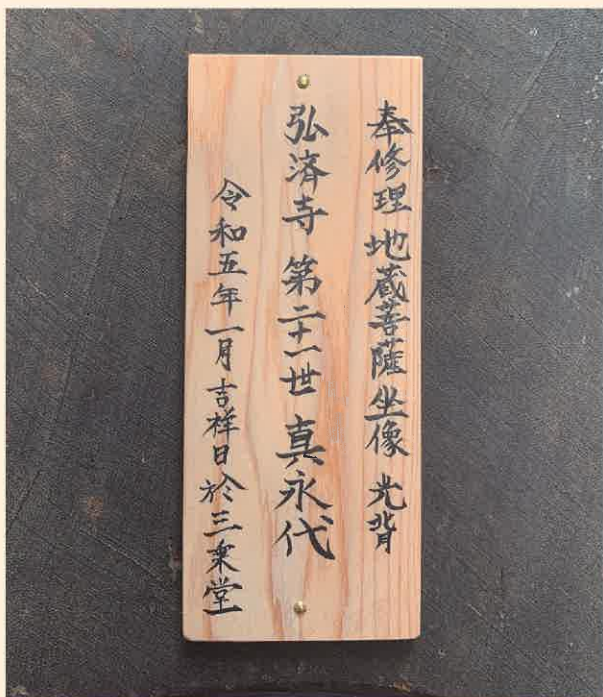 奉修理 地蔵菩薩坐像 光背
弘済寺 第二十一世 真永代
令和五年一月吉祥日於三乗堂